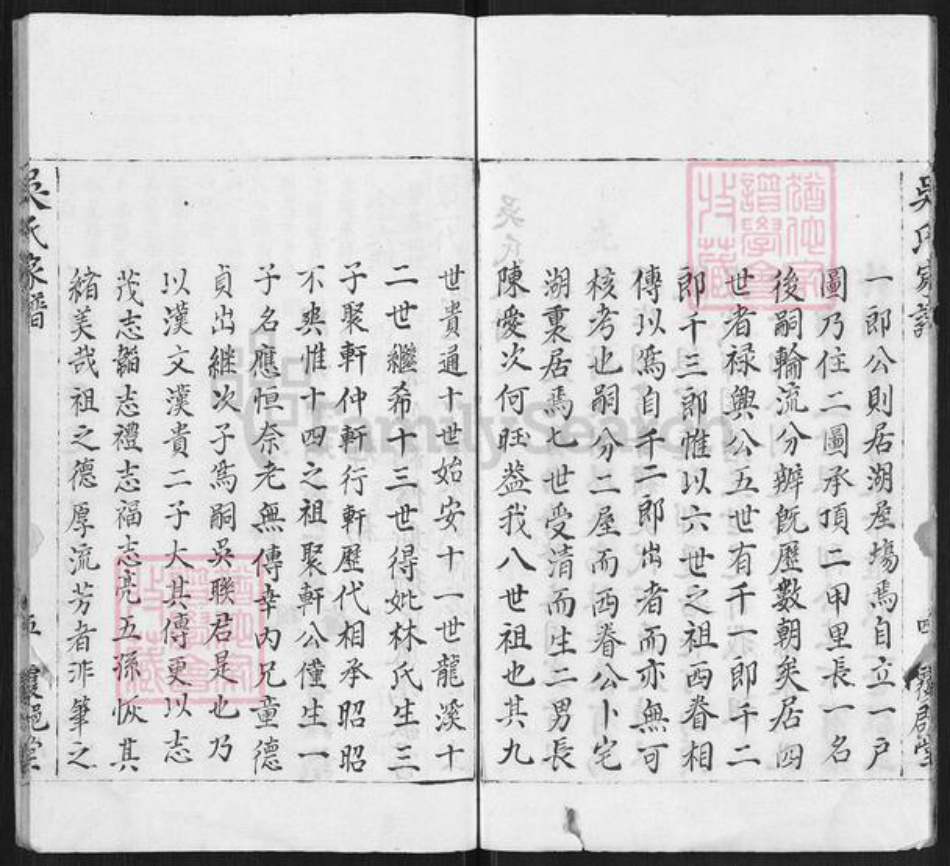 一郎公則居湖塵塲焉自立一戶
圖乃住二圖承頂二甲里長一名
後嗣輪流分辦旣歷數朝矣居四
世者禄興公五世有千一郎千二
郎千三郎惟以六世之祖西眷相
傳以爲自千二郎出者而亦無可
核考也嗣分二屋而西眷公卜宅
湖裏居焉七世受清而生二男長
陳愛次何旺葢我八世祖也其九
世貴通十世始安十一世龍溪十
二世繼希十三世得妣林氏生三
子聚軒仲軒行軒歷代相承昭昭
不爽惟十四之祖聚軒公僅生一
子名應恒奈老無傳幸內兄童德
貞出繼次子爲嗣吳聯君是也乃
以漢文漢貴二子大其傳更以志
茂志韜志禮志福志亮五孫恢其
緒美哉祖之德厚流芳者非筆之
吳氏家譜
五